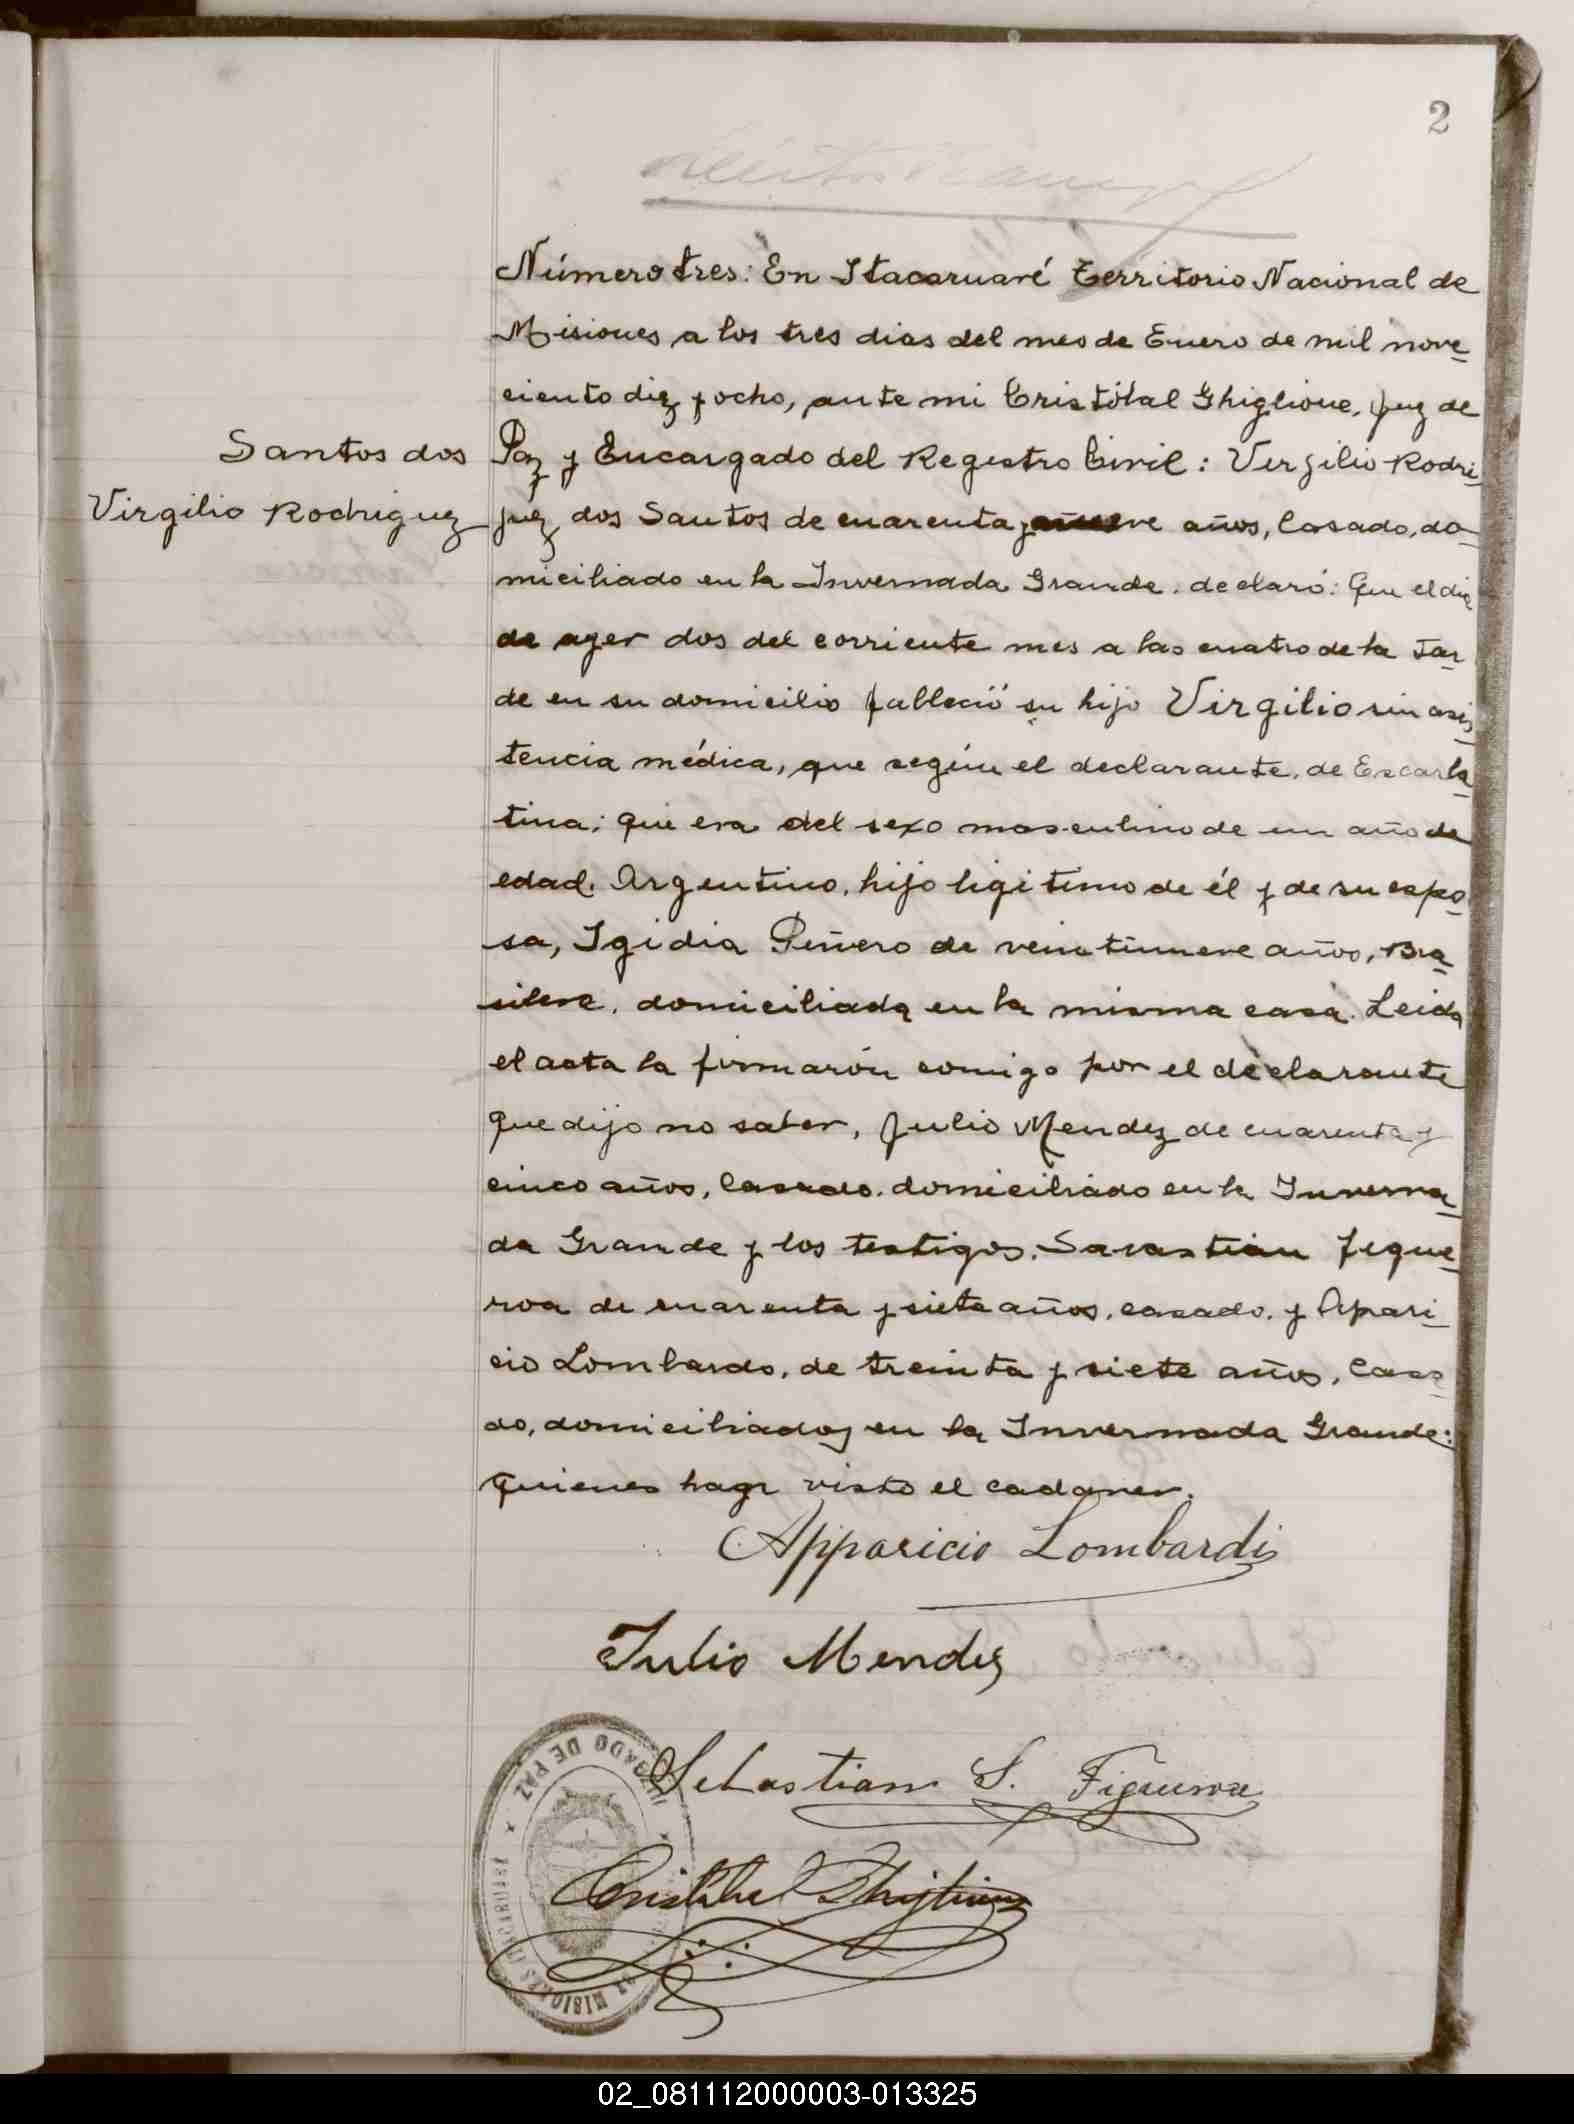 2
Número tres: En Itacaruaré Territorio Nacional de
Misiones, a los tres dias del mes de Enero de mil nove-
ciento diez y ocho, ante mi Cristóbal Ghiglione, Juez de
Santos dos
Virgilio Rodriguez
Paz y Encargado del Registro Civil: Virgilio Rodri-
guez dos Santos de cuarenta y nueve años, Casado, do-
miciliado en la Invernada Grande, declaró: Que el dia
de ayer dos del corriente mes a las cuatro de la tar-
de en su domicilio falleció su hijo Virgilio sin asis-
tencia médica, que según el declarante, de Escarla-
tina; que era del sexo masculino de un año de
edad. Argentino, hijo ligitimo de él y de su espo-
sa, Igidia Peñero de veintinueve años, Bra-
silera, domiciliada en la misma casa. Leida
el acta la firmarón comigo por el declarante
que dijo no saber, Julio Mendez de cuarenta y
cinco años, Casado, domiciliado en la Inverna-
da Grande y los testigos, Savastian Figue-
roa de cuarenta y siete años, casado, y Apari-
cio Lombardo, de treinta y siete años, Casa-
do, domiciliados en la Invernada Grande:
quienes hagr visto el cadaver.
Apparicio Lombardi
Julio Mendez
Sebastian S. Figueroa
Cristóbal Ghiglione
JUZGADO DE PAZ
ITACARUARE MISIONES
02_081112000003-013325